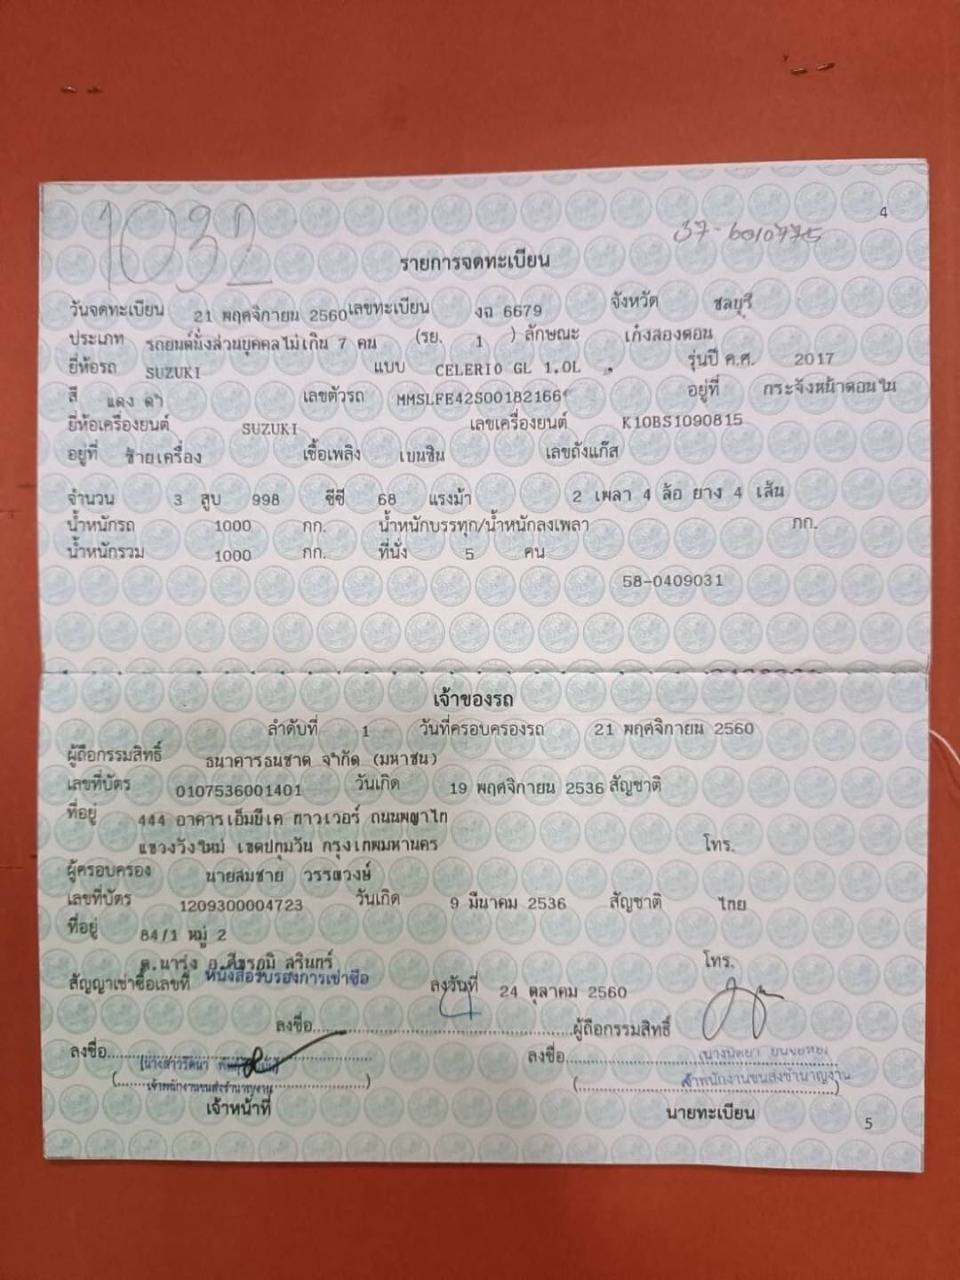 1032
4
37-6010775
รายการจดทะเบียน
วันจดทะเบียน 21 พฤศจิกายน 2560 เลขทะเบียน งฉ 6679 จังหวัด ชลบุรี
ประเภท รถยนต์นั่งส่วนบุคคลไม่เกิน 7 คน (รย. 1 ) ลักษณะ เก๋งสองตอน
ยี่ห้อรถ SUZUKI แบบ CELERIO GL 1.0L รุ่นปี ค.ศ. 2017
สี แดง ดำ เลขตัวรถ MMSLFE42S00182166 อยู่ที่ กระจังหน้าตอนใน
ยี่ห้อเครื่องยนต์ SUZUKI เลขเครื่องยนต์ K10BS1090815
อยู่ที่ ซ้ายเครื่อง เชื้อเพลิง เบนซิน เลขถังแก๊ส
จำนวน 3 สูบ 998 ซีซี 68 แรงม้า 2 เพลา 4 ล้อ ยาง 4 เส้น
น้ำหนักรถ 1000 กก. น้ำหนักบรรทุก/น้ำหนักลงเพลา กก.
น้ำหนักรวม 1000 กก. ที่นั่ง 5 คน
58-0409031
เจ้าของรถ
ลำดับที่ 1 วันที่ครอบครองรถ 21 พฤศจิกายน 2560
ผู้ถือกรรมสิทธิ์ ธนาคารธนชาต จำกัด (มหาชน)
เลขที่บัตร 0107536001401 วันเกิด 19 พฤศจิกายน 2536 สัญชาติ
ที่อยู่ 444 อาคารเอ็มบีเค ทาวเวอร์ ถนนพญาไท
แขวงวังใหม่ เขตปทุมวัน กรุงเทพมหานคร โทร.
ผู้ครอบครอง นายสมชาย วรรณวงษ์
เลขที่บัตร 1209300004723 วันเกิด 9 มีนาคม 2536 สัญชาติ ไทย
ที่อยู่ 84/1 หมู่ 2
ต.นารุ่ง อ.ศีขรภูมิ สุรินทร์ โทร.
สัญญาเช่าซื้อเลขที่ หนังสือรับรองการเช่าซื้อ ลงวันที่ 24 ตุลาคม 2560
ลงชื่อ ผู้ถือกรรมสิทธิ์
ลงชื่อ ลงชื่อ
(นางสาวรัตนา
เจ้าพนักงานขนส่งชำนาญงาน เจ้าพนักงานขนส่งชำนาญงาน
เจ้าหน้าที่ นายทะเบียน
5